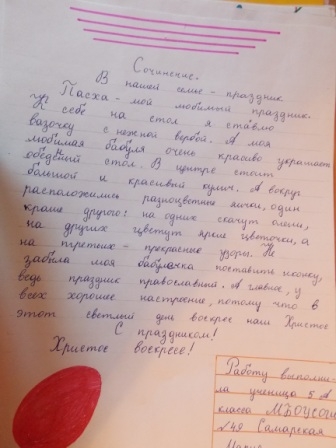 Сочинение.
В нашей семье - праздник
Пасха - мой любимый праздник.
К себе на стол я ставлю
вазочку с нежной вербой. А моя
любимая бабуля очень красиво украшает
обеденный стол. В центре стоит
большой и красивый кулич. А вокруг
расположились разноцветные яички, один
краше другого: на одних скачут олени,
на других цветут яркие цветочки, а
на третьих - прекрасные узоры. Не
забыла моя бабулечка поставить иконку,
ведь праздник православный. А главное, у
всех хорошее настроение, потому что в
этот светлый день воскрес наш Христос
С праздником!
Христос воскресе!
Работу выполни-
ла ученица 5 А
класса МБОУСОШ
№49 Самарская